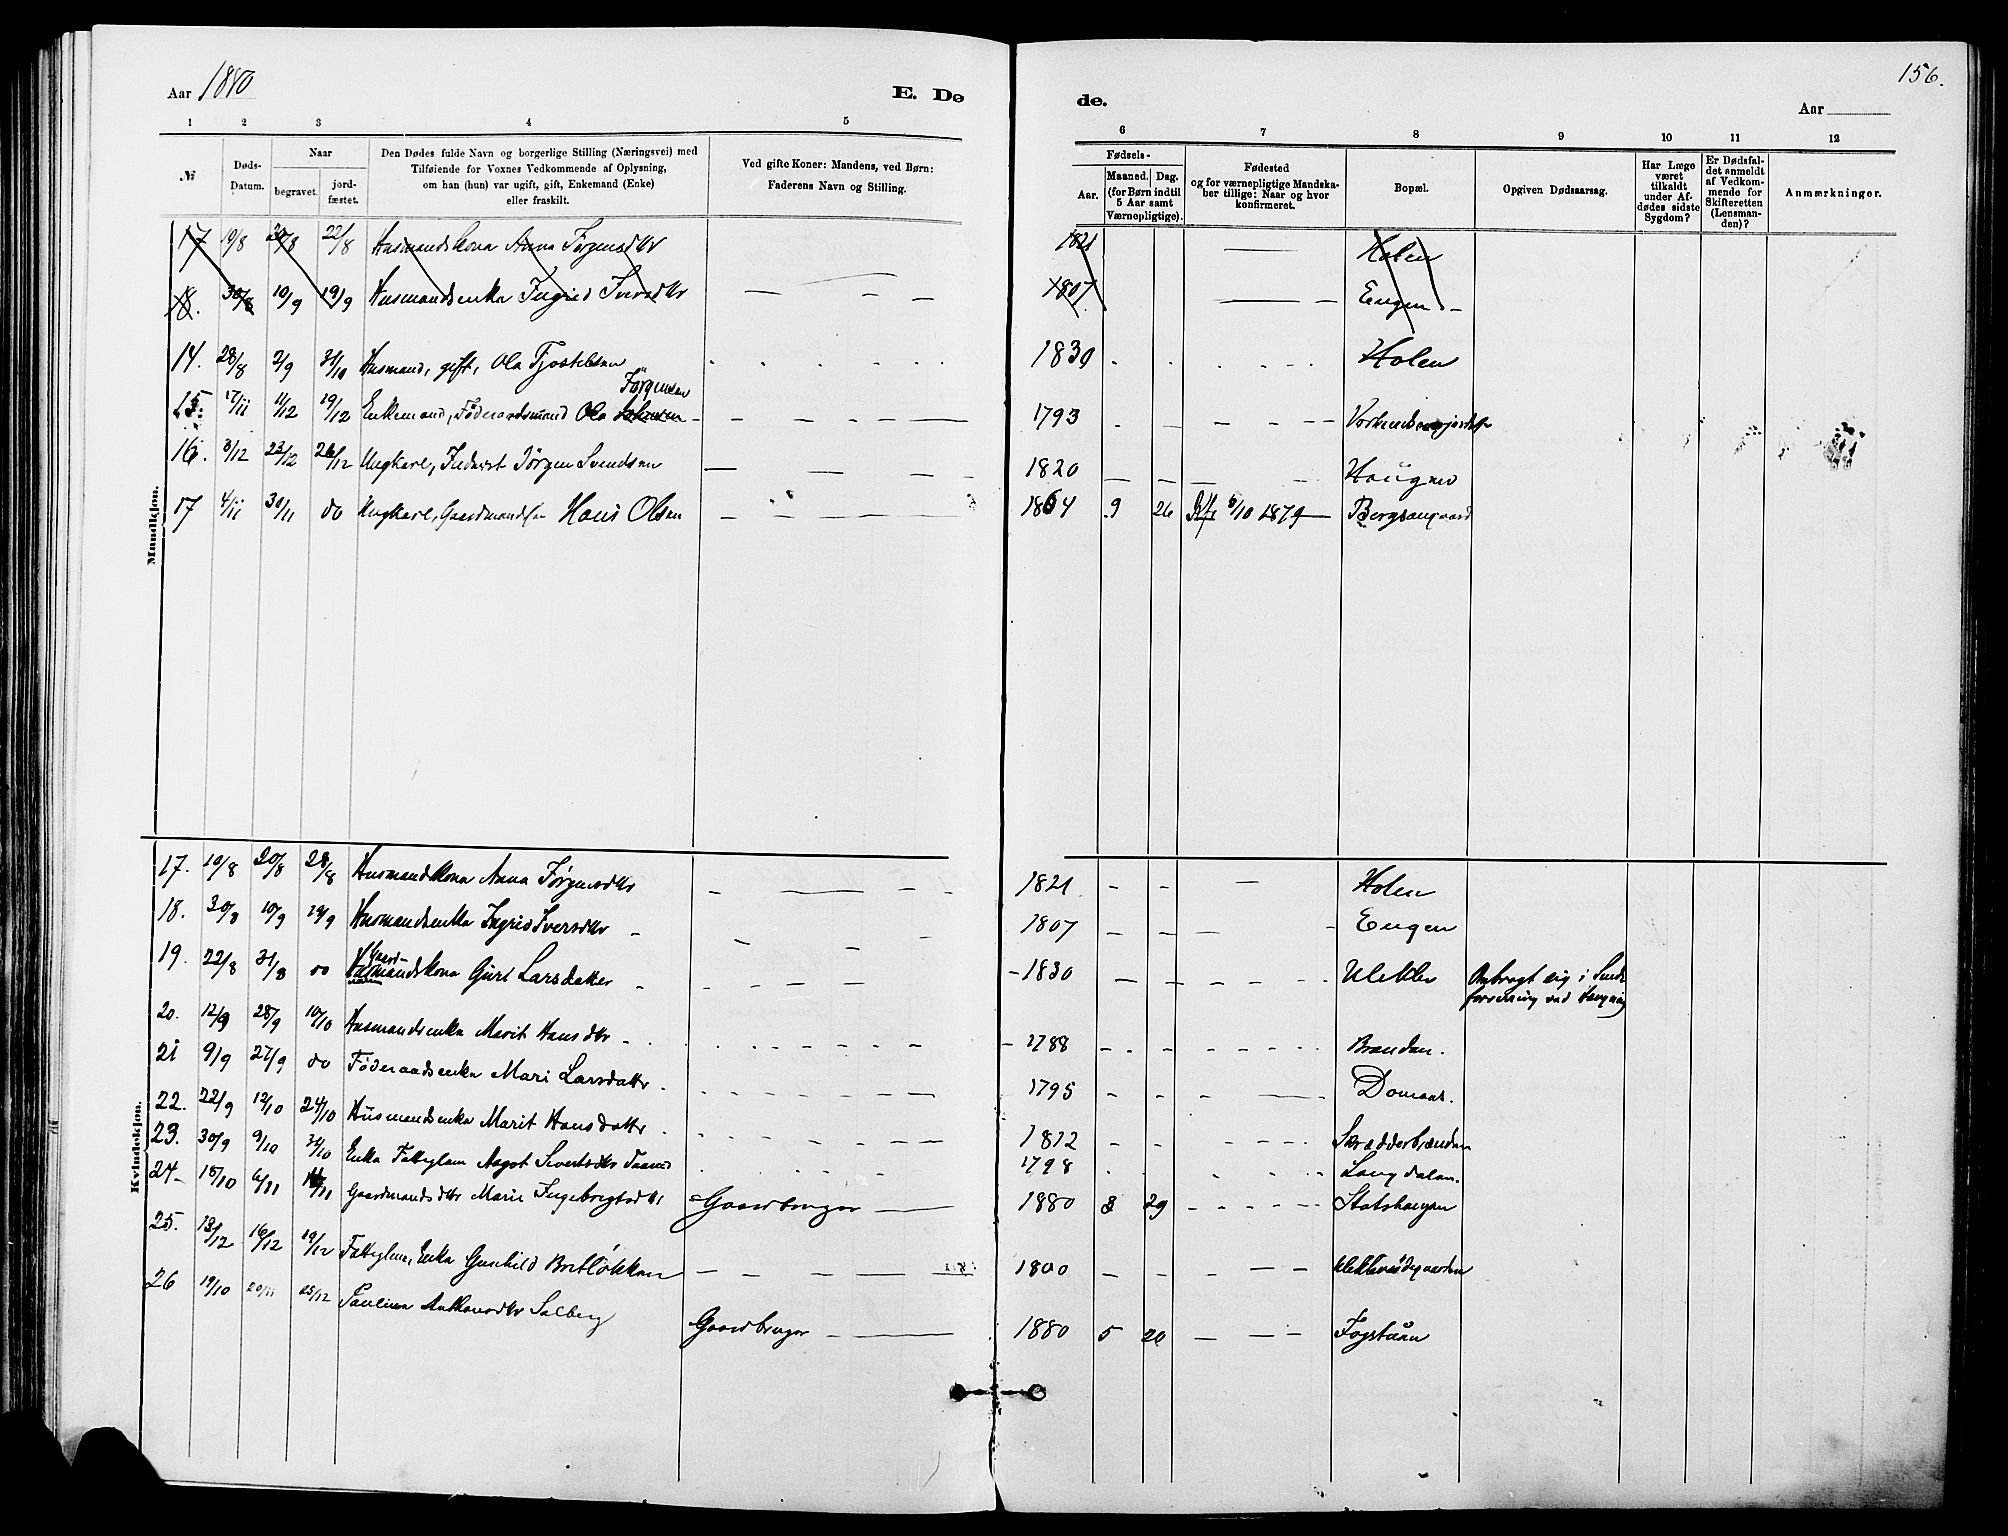 156.
Aar 1880
E. Dø
de.
Aar
1 2 3 4 5 6 7 8 9 10 11 12
№
Døds-Datum.
Naar
begravet.
jord-fæstet.
Den Dødes fulde Navn og borgerlige Stilling (Næringsvei) med
Tilføiende for Voxnes Vedkommende af Oplysning,
om han (hun) var ugift, gift, Enkemand (Enke)
eller fraskilt.
Ved gifte Koner: Mandens, ved Børn:
Faderens Navn og Stilling.
Fødsels-
Aar.
Maaned. Dag.
(for Børn indtil
5 Aar samt
Værnepligtige).
Fødested
og for værnepligtige Mandska-
ber tillige: Naar og hvor
konfirmeret.
Bopæl.
Opgiven Dødsaarsag.
Har Læge
været
tilkaldt
under Af-
dødes sidste
Sygdom?
Er Dødsfal-
det anmeldt
af Vedkom-
mende for
Skifteretten
(Lensman-
den)?
Anmærkninger.
Mandkjøn.
17 19/8 20/8 22/8 Husmandskona Anna Jørgensdtr 1821 — Holen
18. 30/8 10/9 19/9 Husmandsenka Ingrid Iversdtr — — — 1807 — — Engen —
14. 28/8 2/9 31/10 Husmand, gift, Ola Tjostelsen 1830 Holen
Jørgensen
15. 17/11 11/12 19/12 Enkemand, Föderaadsmand Ola — — — 1793 - — — —
16. 3/12 23/12 26/12 Ungkarl, Inderst Jörgen Svendsen — — — 1820 — — Haugen
17 4/11 30/11 do Ungkarl, Gaardmands Hans Olsen — — — 1864 9 26 Kf. 5/10 1879 — Bergsangaard
Kvindekjøn.
17. 19/8 20/8 28/8 Husmandskona Anna Jörgensdtr — — — 1821 - - — Holen
18. 30/8 10/9 19/9 Husmandsenka Ingrid Iversdtr — — — 1807 — — — Engen
19. 22/8 31/8 do Gaard-
mandskona Guri Larsdatter - 1830 — — Uleklev Ombragt sig i Sinds
forvirring ved hængning
20. 12/9 28/9 10/10 Husmandsenka Marit Hansdtr - 1788 Brandan.
21 9/9 27/9 do Föderaadsenka Mari Larsdattr. 1795 Domaas.
22. 22/9 12/10 24/10 Husmandsenka Marit Hansdattr. 1812 Skrædderbrænden
23. 30/9 9/10 31/10 Enka Fattiglem Aagot Sivertsdtr 1798 Langdalen.
24- 15/10 6/11 /11 Gaardmandsdtr Marie Ingebregtsdtr Gaardbruger 1880 8 29 Statshaugen
25. 13/12 16/12 19/12 Fattiglem, Enka Gunhild Bretløkken — — — 1800 — —
26 19/10 20/11 25/12 Paulina Anthonsdtr Solberg Gaardbruger — — 1880 5 20 — — Fogstuan